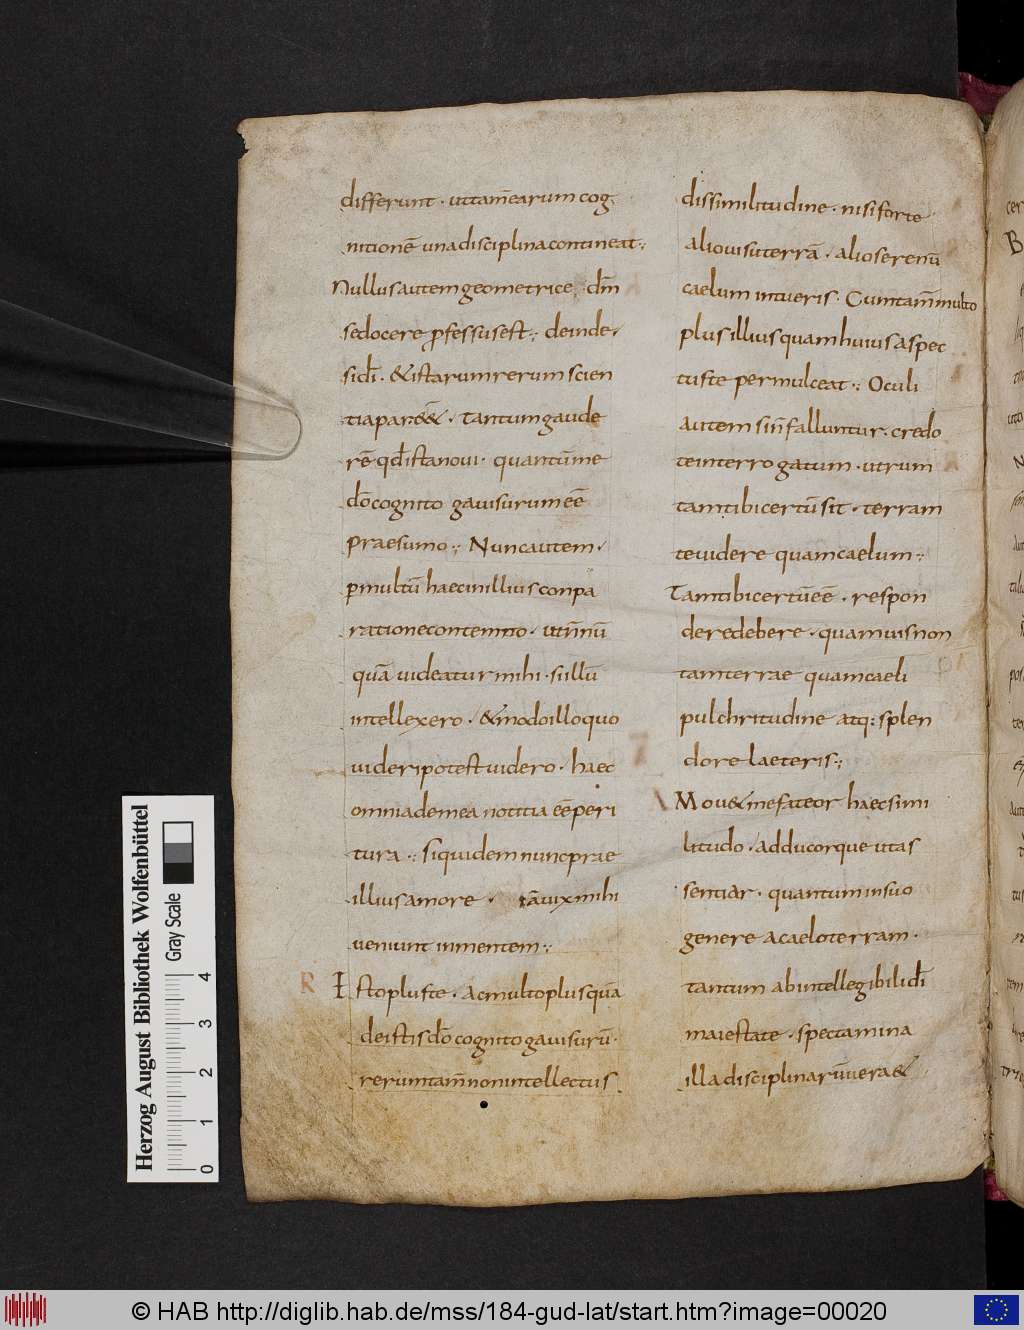 differunt · ut tam̄ earum cog
nitionē una disciplina contineat ·:
Nullus autem geometrice, dm̄
se docere ꝓfessus est ·: deinde
si dr̄ · & istarum rerum scien
tia par ē& & · tantum gaude
rē qđ ista noui · quantū me
dō cognito gauisurum eē
praesumo ·: Nunc autem ·
ꝑmultū haec in illius conpa
ratione contempno · ut n̄nū
quā uideatur mihi · si illū
intellexero · & modo illo quo
uideri potest uidero · haec
omnia de mea notitia eē peri
tura ·: siquidem nunc prae
illius amore · tā uix mihi
ueniunt in mentem ·:
R Isto plus te · ac multo plus quā
de istis dō cognito gauisurū ·
rerum tam̄ non intellectus
dissimilitudine · nisi forte
alio uisu terrā · alio serenū
caelum intueris · Cum tam̄ multo
plus illius quam huius aspec
tus te permulceat ·: Oculi
autem si n̄ falluntur · credo
te interrogatum · utrum
tam tibi certū sit · terram
te uidere quam caelum ·:
Tam tibi certū eē · respon
dere debere · quamuis non
tam terrae quam caeli
pulchritudine atq: splen
dore laeteris ·:
A Mou& me fateor haec simi
litudo · adducorque ut as
sentiar · quantum in suo
genere a caelo terram ·
tantum ab intellegibili dī
maiestate · spectamina
illa disciplinarū uera &
Herzog August Bibliothek Wolfenbüttel
Gray Scale
0 1 2 3 4
© HAB http://diglib.hab.de/mss/184-gud-lat/start.htm?image=00020